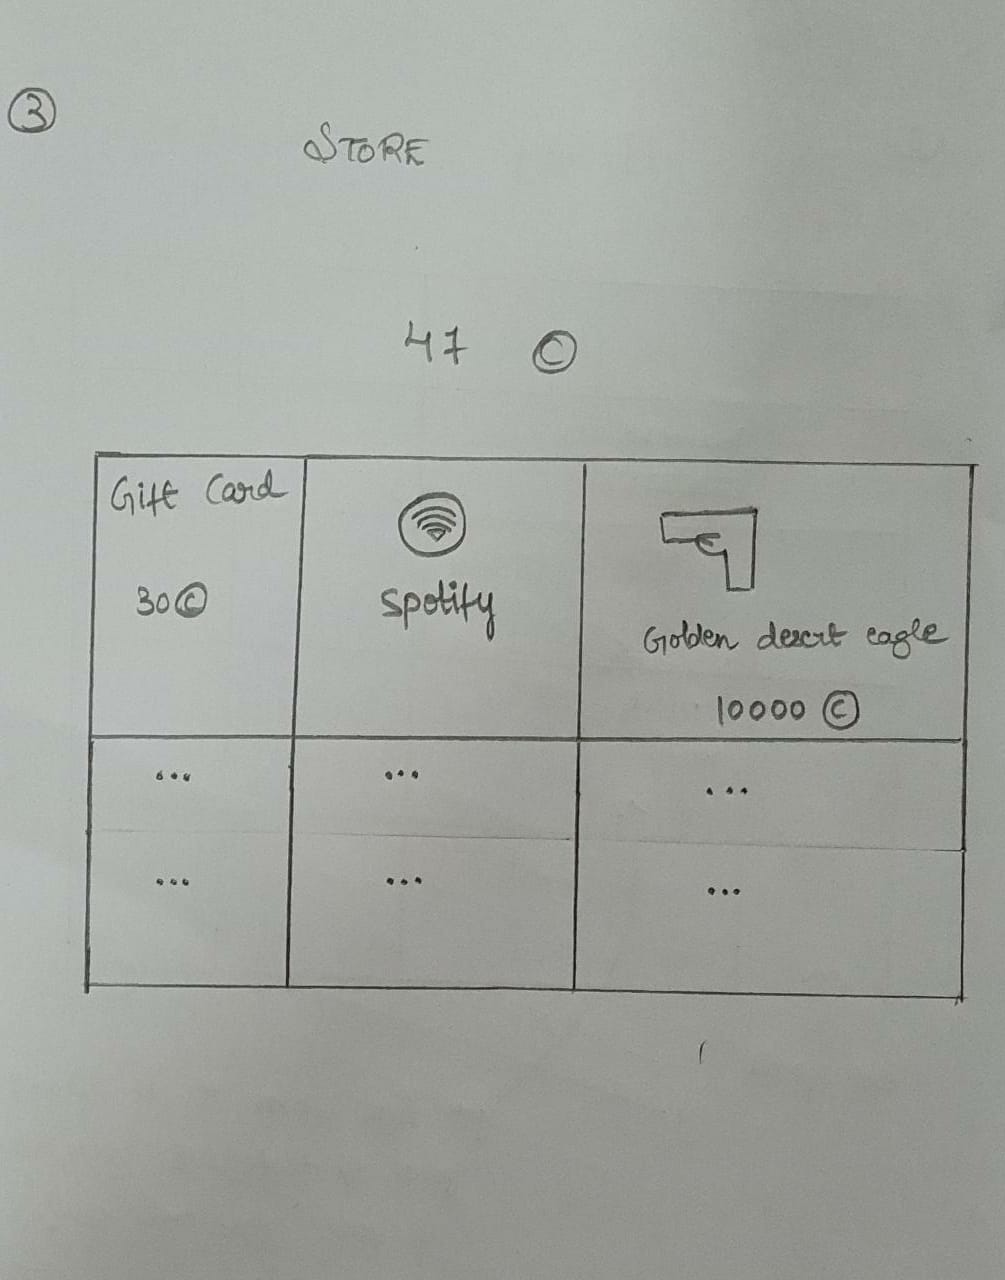 3
STORE
47 ©
Gift Card
30 ©
spotify
Golden desert eagle
10000 ©
... ... ...
... ... ...